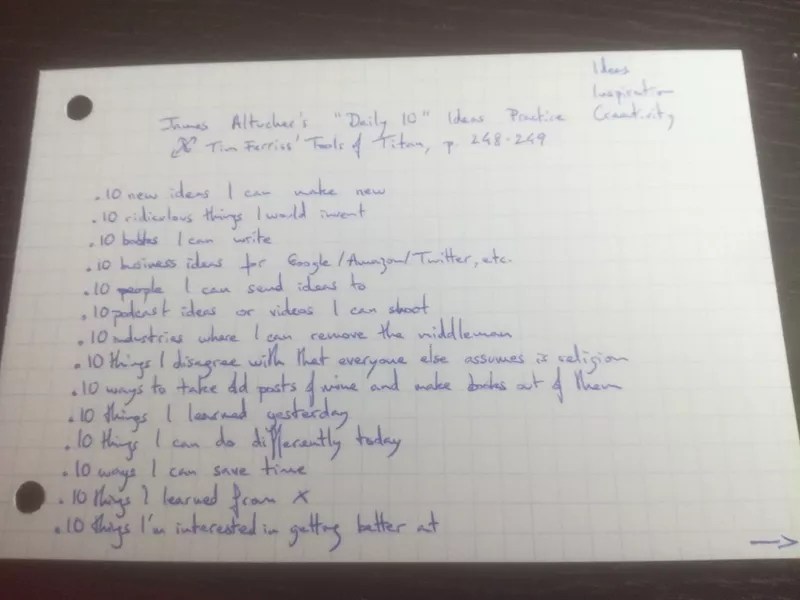 Ideas
Inspiration
Creativity
James Altucher's "Daily 10" Ideas Practice
Tim Ferriss' Tools of Titan, p. 248-249
.10 new ideas I can make new
.10 ridiculous things I would invent
.10 books I can write
.10 business ideas for Google/Amazon/Twitter, etc.
.10 people I can send ideas to
.10 podcast ideas or videos I can shoot
.10 industries where I can remove the middleman
.10 things I disagree with that everyone else assumes is religion
.10 ways to take old posts of mine and make books out of them
.10 things I learned yesterday
.10 things I can do differently today
.10 ways I can save time
.10 things I learned from X
.10 things I'm interested in getting better at
→